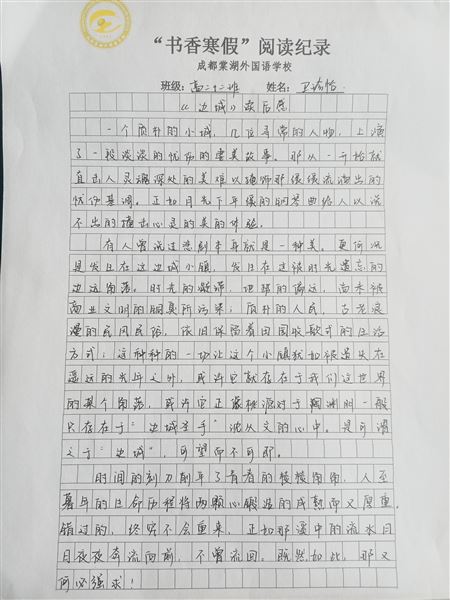 “书香寒假”阅读纪录
成都棠湖外国语学校
班级：高二十二班 姓名：卫瑜怡
《边城》读后感
一个质朴的小城，几位寻常的人物，上演
了一段淡淡的忧伤的凄美故事。那从一开始就
直击人灵魂深处的美难以掩饰那缓缓流淌出的
忧伤基调。正如月光下年缓的钢琴曲给人以说
不出的撞击心灵的美的体验。
有人曾说过悲剧本身就是一种美。更何况
是发生在这边城小镇，发生在这被时光遗忘的
边远角落。时光的凝滞，地理的偏远，尚未被
商业文明的铜臭所污染；质朴的人民，古老浪
漫的民风民俗，依旧保留着田园牧歌式的生活
方式；这种种的一切让这个小镇犹如被遗失在
遥远的光年之外，或许它就存在于我们这世界
的某个角落，或许它正像桃源对于陶渊明一般
只存在于“边城圣手”沈从文的心中。是可谓
之于“边城”，可望而不可即。
时间的刻刀削平了青春的棱棱角角，人至
暮年的生命历程将两颗心锻造的成熟而又厚重。
错过的，终究不会重来，正如那溪中的流水日
日夜夜奔流向前，不曾流回。既然如此，那又
何必强求！